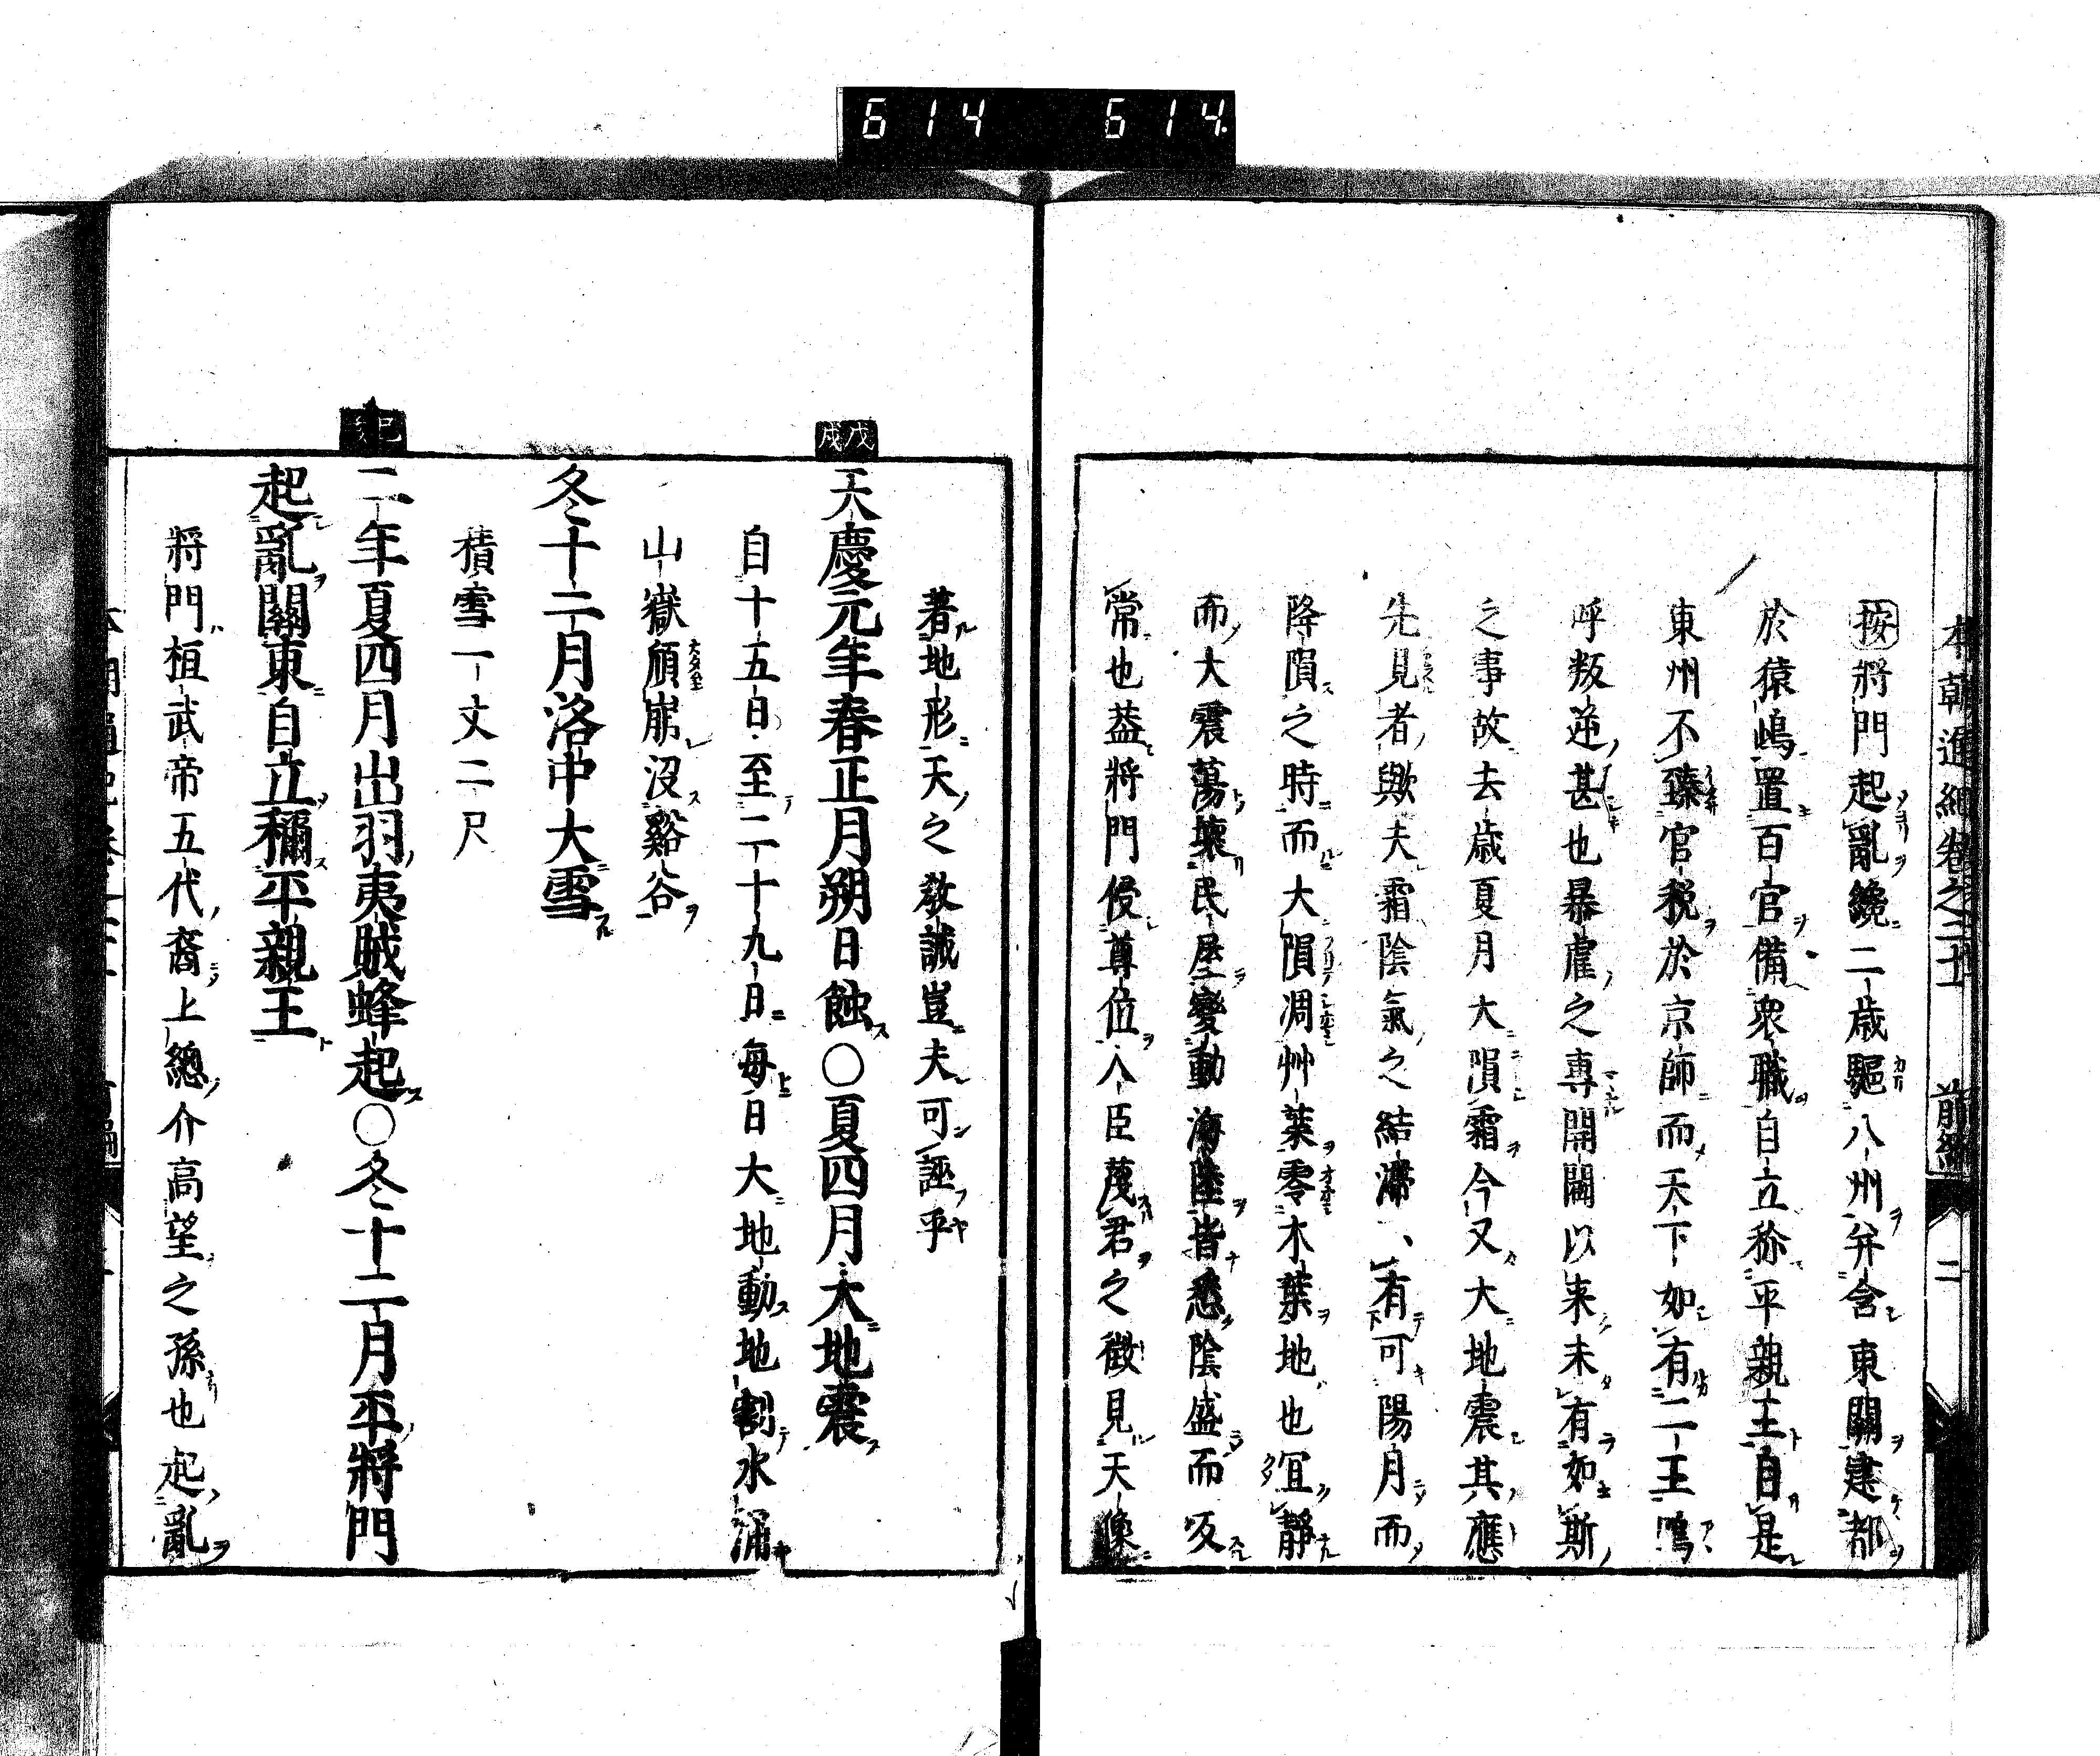 614 614
本朝通紀卷之二十 前編 二
按將門起亂纔二歳驅八州并含東關建都
於猿嶋置百官備衆職自立称平親王自是
東州不臻官税於京師而天下如有二王嗚
呼叛逆甚也暴虐之專開闢以来未有如斯
之事故去歳夏月大隕霜今又大地震其應
先見者歟夫霜陰氣之結滞、有可陽月而
降隕之時而大隕凋艸葉零木葉地也宜靜
而大震蕩壊民屋變動海陸皆悉陰盛而反
常也蓋將門侵尊位人臣蔑君之徴見天像
著地形天之教誡豈夫可誣乎
戊戌
天慶元年春正月朔日蝕〇夏四月大地震
自十五日至二十九日毎日大地動地割水涌
山嶽頽崩没谿谷
冬十二月洛中大雪
積雪一丈二尺
二年夏四月出羽夷賊蜂起〇冬十二月平將門
起亂關東自立稱平親王
將門桓武帝五代裔上總介高望之孫也起亂